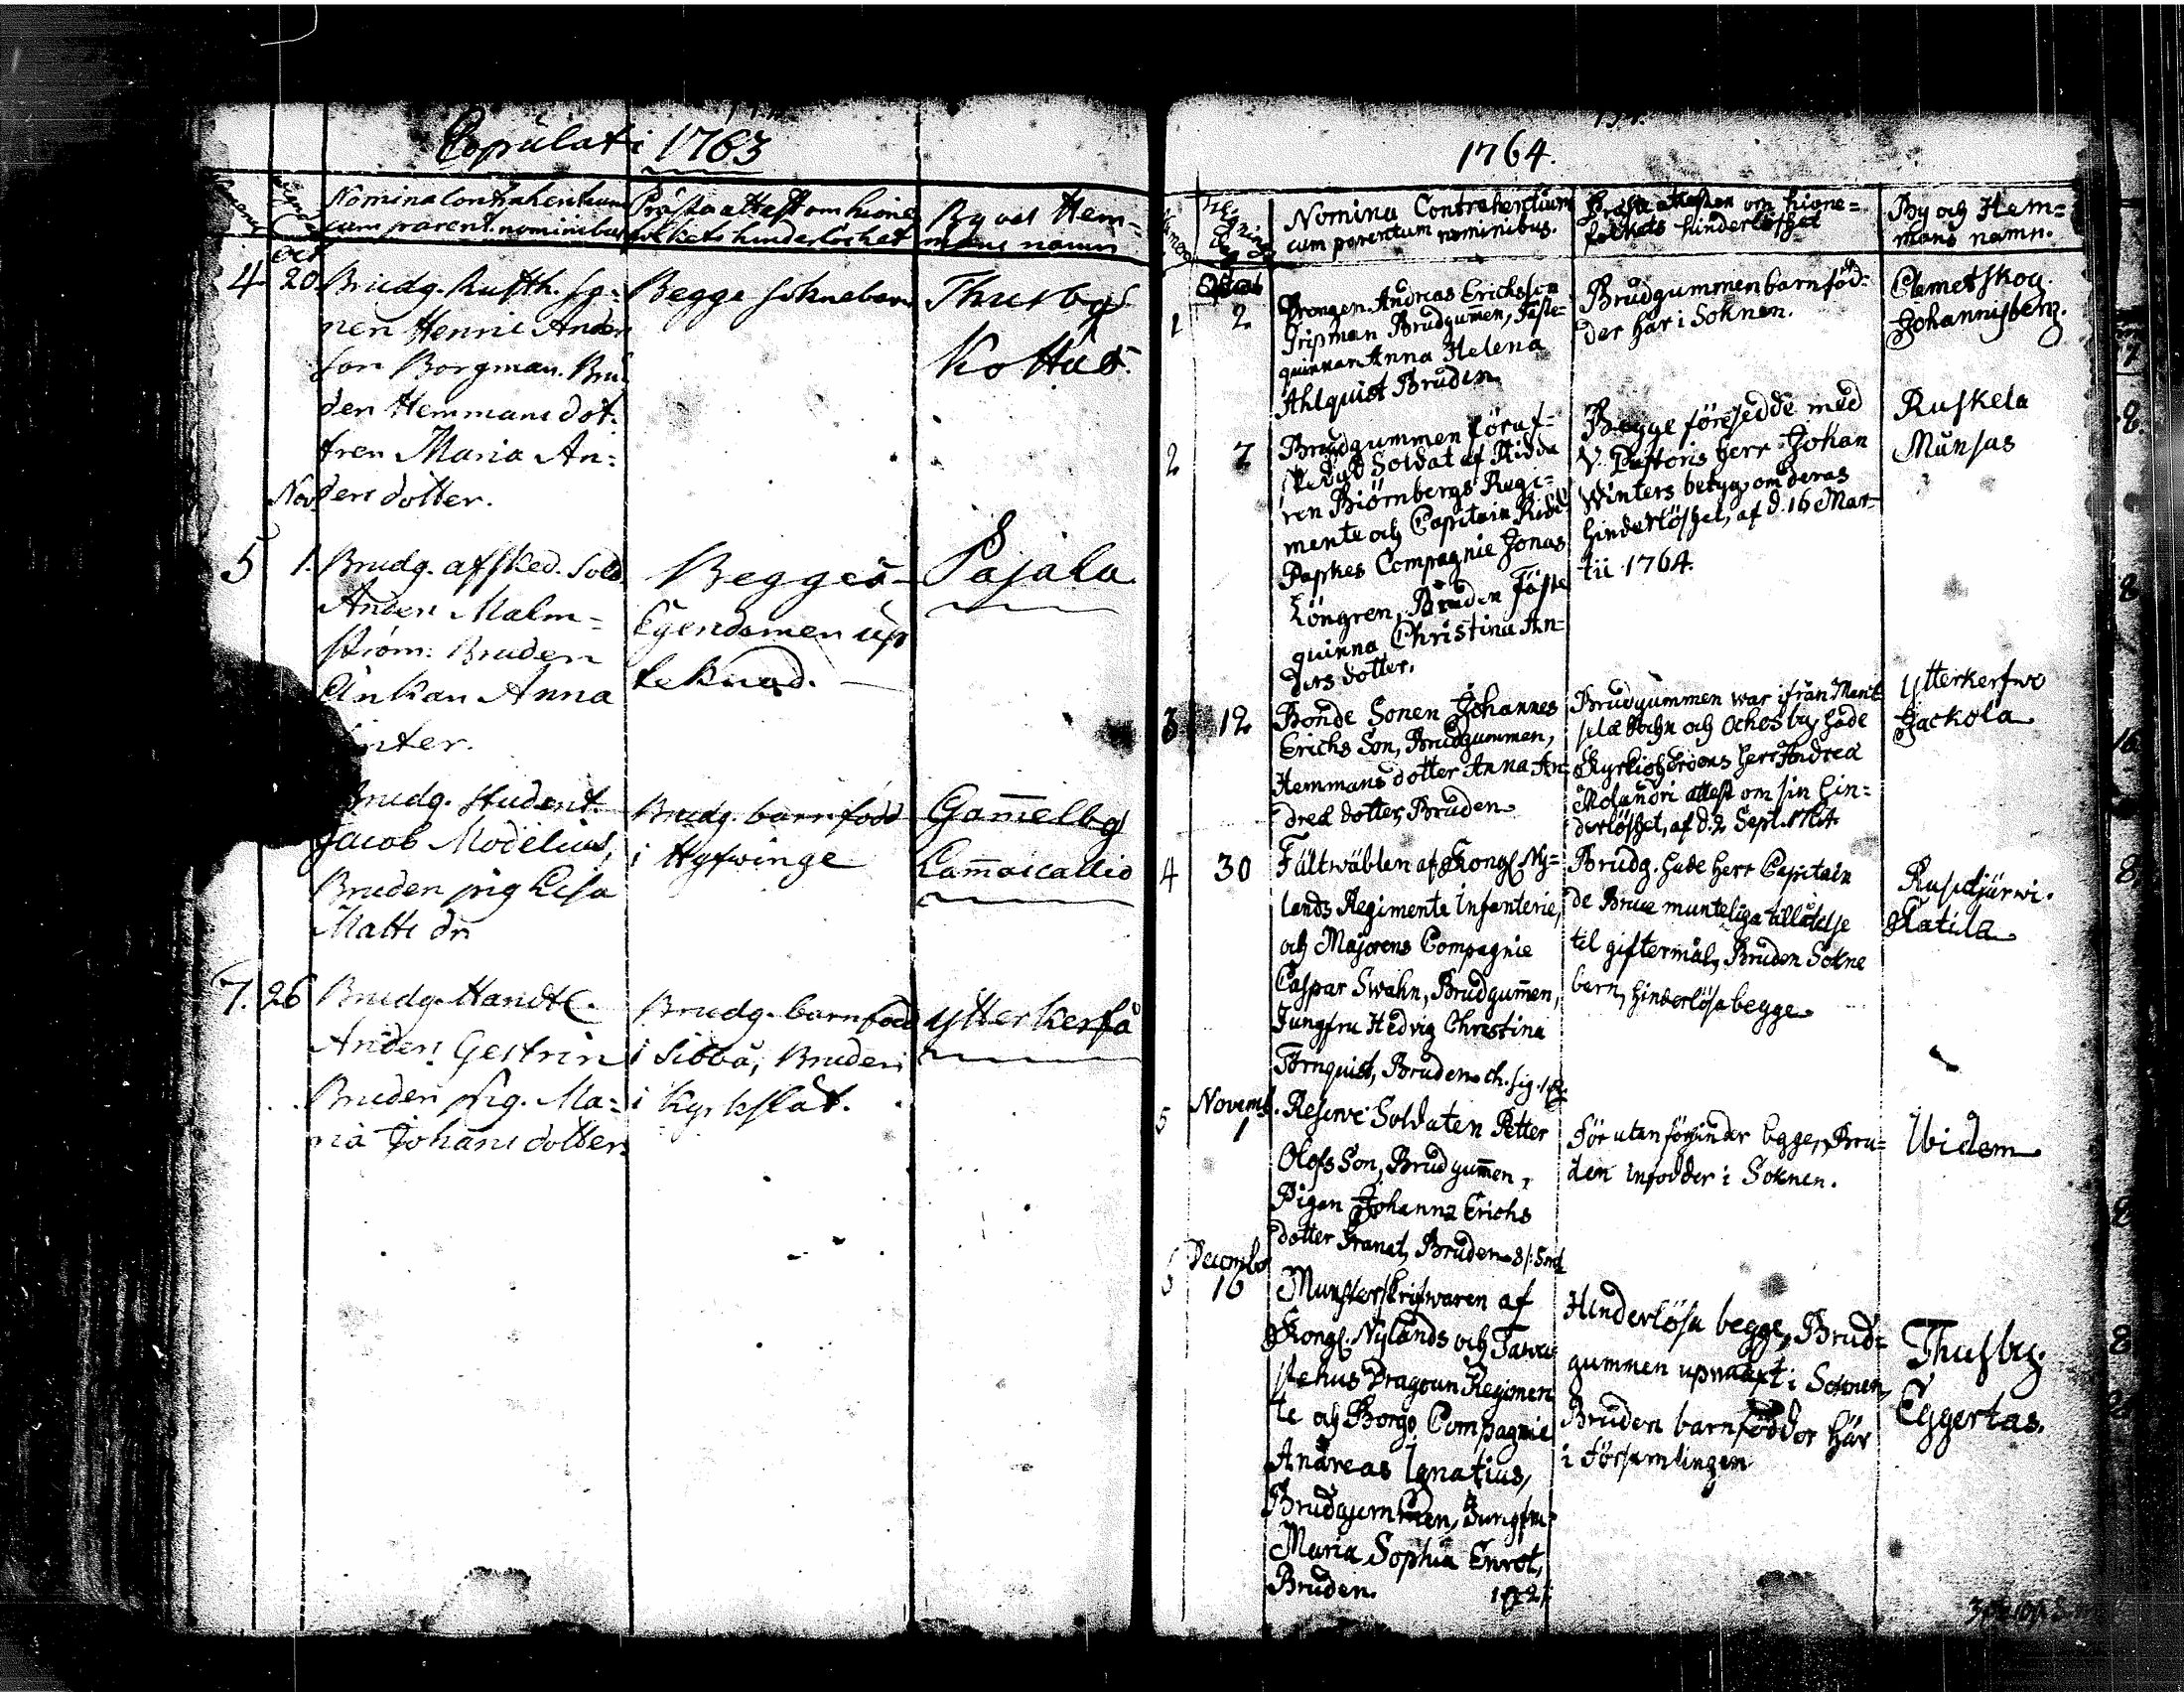 Copulati 1763
Nomina Contrahentium
cum parent. nominibus
Prästa attest om hione
folkets hinderlöshet
By och Hem-
mans namn
Oct
4 20 Brudg. Rusth. sg-
nen Henric Anders
son Borgman. Bru
den Hemmans dot-
tren Maria An-
ders dotter.
Begge Soknebarn
Thusby
Kottas.
Nov
5 1. Brudg. afsked. Sold.
Anders Malm-
ström: Bruden
Änkan Anna
Begges
Egendomen up
teknad.
Pajala
Brudg. Student.
Jacob Modelius,
Bruden pig Lisa
Matts dr
Brudg. barnfödd
i Hyfwinge
Gam̄elby
Lam̄ascallio
7. 26 Brudg. Handtl.
Anders Gestrin
Bruden pig. Ma-
ria Johans dotter.
Brudg. barnfödd
i Sibbå, Bruden
i Kyrkslät.
Ytterkerfå
1764.
Nomina Contrahentium
cum parentum nominibus.
Prästa attesten om hione-
folkets hinderlöshet
By och Hem-
mans namn.
1 2 Andreas Erichsson
Gripman Brudgumen, Fäste-
quinnan Anna Helena
Ahlquist Bruden.
Brudgummen barnföd-
der här i Soknen.
Clemetskog
Johannisberg.
2 7 Brudgummen föraf-
skedad Soldat af
ren Biörnbergs Regi-
mente och Capitain
Papkes Compagnie Jonas
Löngren, Bruden Fäste
quinna Christina An-
ders dotter.
Begge försedde med
V. Pastoris herr Johan
Winters betyg om deras
hinderlöshet, af d. 16 Mar-
tii 1764.
Ruskela
Munsas
3 12 Bonde Sonen Johannes
Erichs Son, Brudgummen,
Hemmans dotter Anna An-
dreæ dotter, Bruden
Brudgummen war ifrån Mänt
sælæ Sochn och Ochosby hade
Kyrkioherdens herr Andreæ
Molandri attest om sin hin-
derlöshet, af d. 2 Sept. 1764.
Ytterkerfwo
Jackola
4 30 Fältwäblen af Kongl. Ny-
lands Regimente Infanterie,
och Majorens Compagnie
Caspar Swahn, Brudgum̄en,
Jungfru Hedvig Christina
Törnquist, Bruden
Brudg. hade herr Capitain
de Bruce munteliga tillåtelse
til giftermål, Bruden Sokne
barn, hinderlösa begge
Rusutjärwi.
Katila
Novemb.
5 1 Reserve Soldaten Petter
Olofs Son, Brudgum̄en,
Pigan Johanna Erichs
dotter Granat, Bruden
För utan förhinder begge, Bru-
den infödder i Soknen.
Widem
December
6 16 Munsterskrifwaren af
Kongl. Nylands och Tawa
stehus Dragoun Regimen
te och Borgo Compagnie
Andreas Ignatius,
Brudgummen, Jungfru
Maria Sophia Enrot,
Bruden.
Hinderlösa begge, Brud-
gummen upwäxt i Soknen,
Bruden barnfödder här
i Församlingen
Thusby
Eggertas.